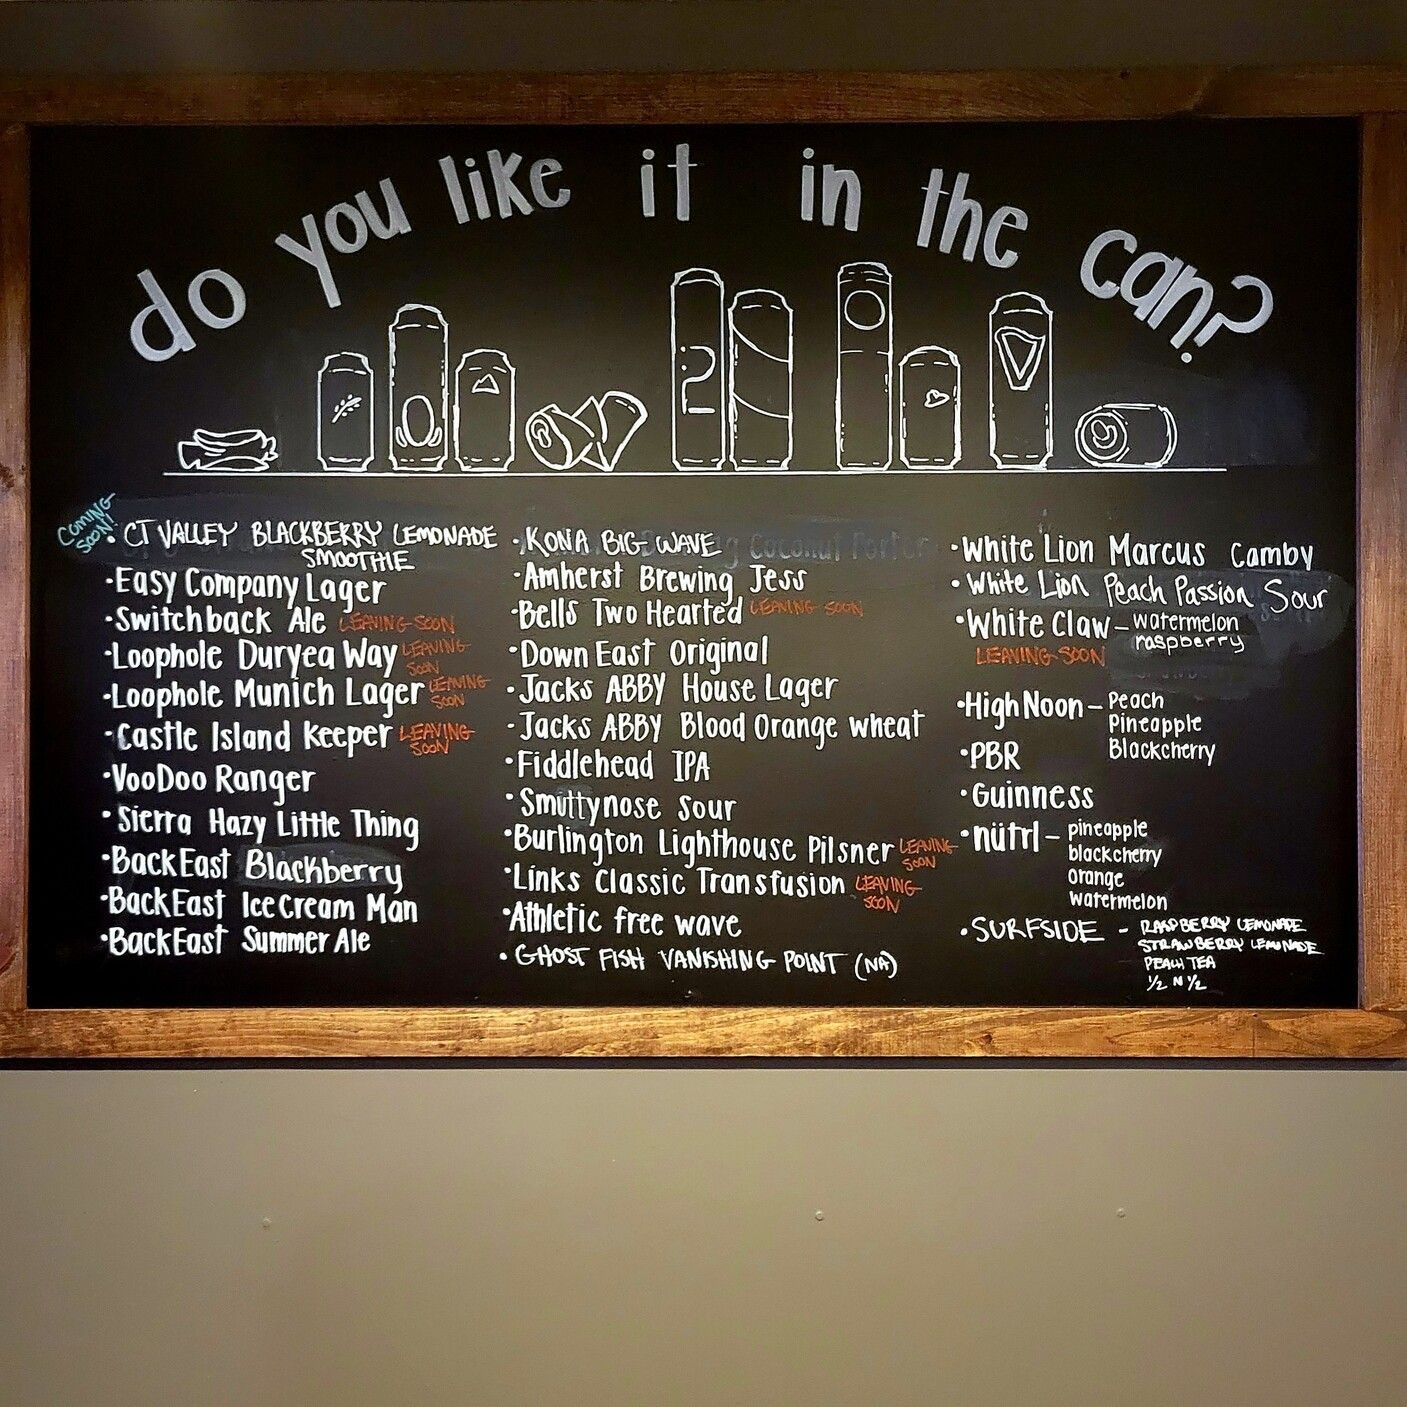 do you like it in the can?
COMING SOON!
• CT VALLEY BLACKBERRY LEMONADE
SMOOTHIE
• Easy Company Lager
• Switchback Ale LEAVING SOON
• Loophole Duryea Way LEAVING SOON
• Loophole Munich Lager LEAVING SOON
• Castle Island Keeper LEAVING SOON
• VooDoo Ranger
• Sierra Hazy Little Thing
• BackEast Blackberry
• BackEast Ice Cream Man
• BackEast Summer Ale
• KONA BIG WAVE
• Amherst Brewing Jess
• Bells Two Hearted LEAVING SOON
• Down East Original
• Jacks ABBY House Lager
• Jacks ABBY Blood Orange wheat
• Fiddlehead IPA
• Smuttynose Sour
• Burlington Lighthouse Pilsner LEAVING SOON
• Links Classic Transfusion LEAVING SOON
• Athletic free wave
• GHOST FISH VANISHING POINT (NA)
• White Lion Marcus Camby
• White Lion Peach Passion Sour
• White Claw – watermelon
raspberry
LEAVING SOON
• High Noon – Peach
Pineapple
Blackcherry
• PBR
• Guinness
• nütrl – pineapple
blackcherry
orange
watermelon
• SURFSIDE – RASPBERRY LEMONADE
STRAWBERRY LEMONADE
PEACH TEA
1/2 N 1/2